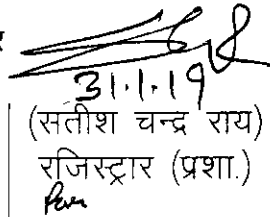 31.1.19
(सतीश चन्द्र राय)
रजिस्ट्रार (प्रशा.)